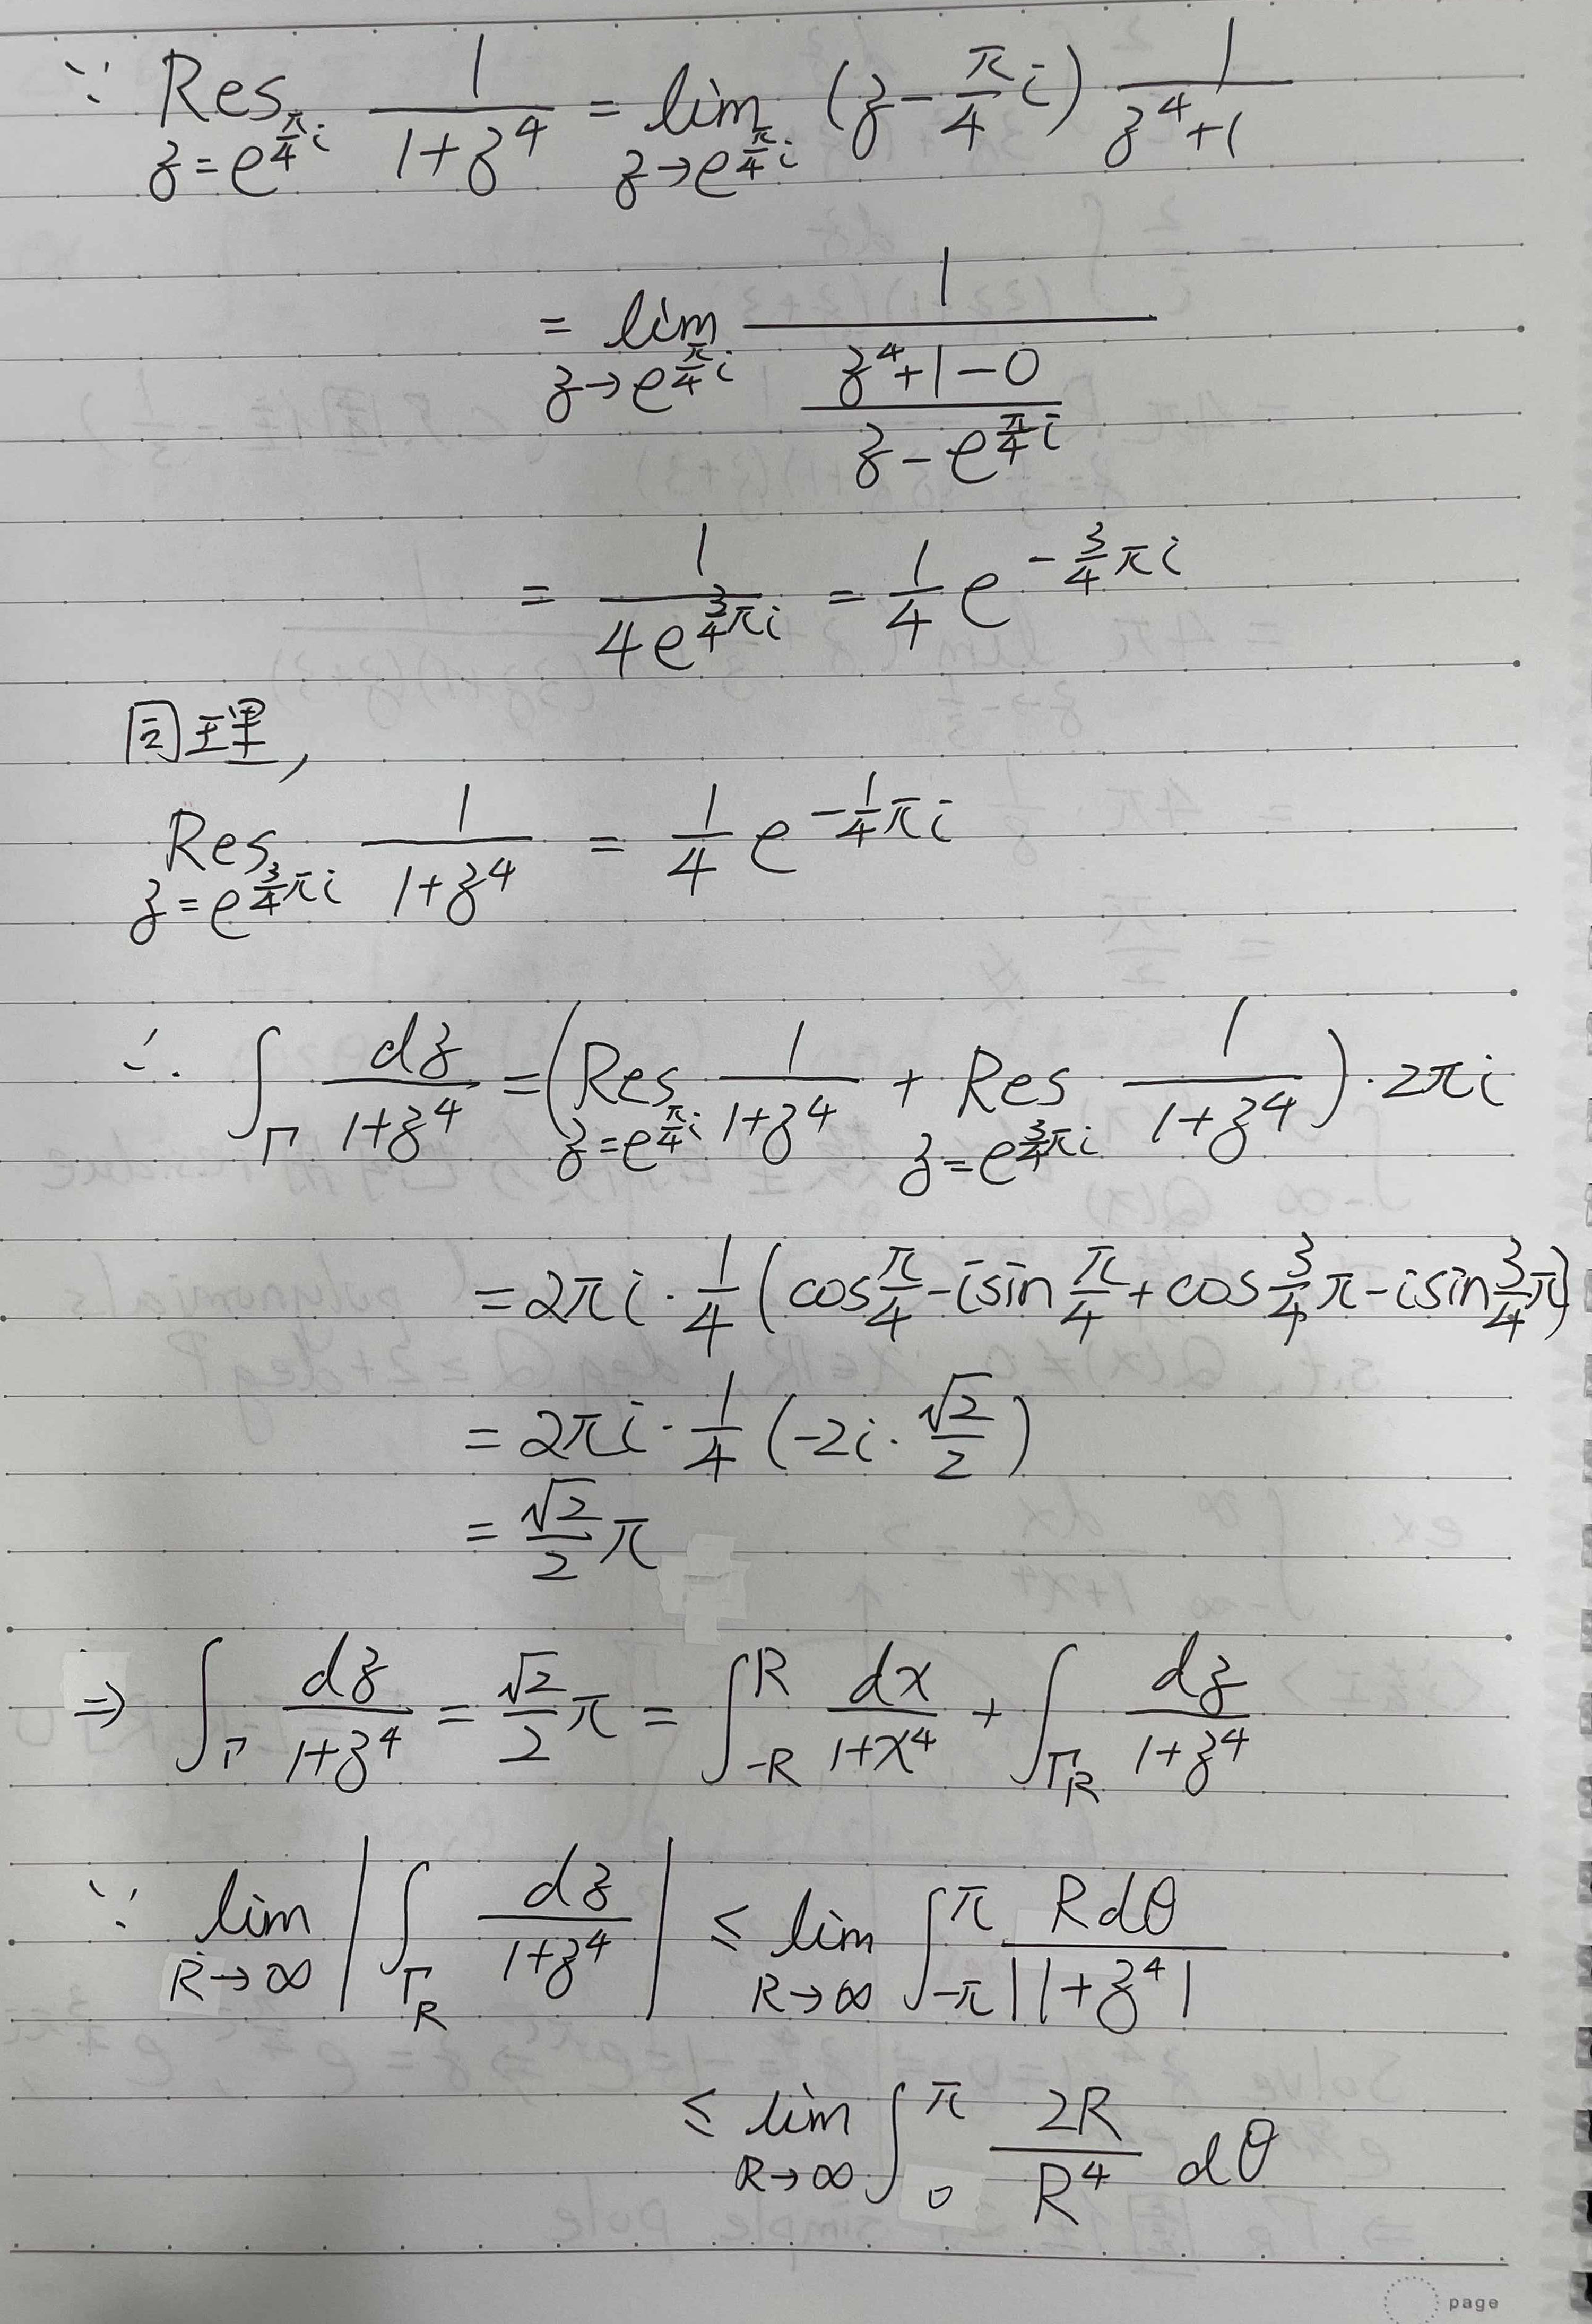 ∵ Res_{z=e^{π/4 i}} 1/(1+z^4) = lim_{z→e^{π/4 i}} (z - π/4 i) 1/(z^4+1)
= lim_{z→e^{π/4 i}} 1/((z^4+1-0)/(z-e^{π/4 i}))
= 1/(4e^{3/4 πi}) = 1/4 e^{-3/4 πi}
同理,
Res_{z=e^{3/4 πi}} 1/(1+z^4) = 1/4 e^{-1/4 πi}
∴ ∫_Γ dz/(1+z^4) = (Res_{z=e^{π/4 i}} 1/(1+z^4) + Res_{z=e^{3/4 πi}} 1/(1+z^4))·2πi
= 2πi · 1/4 (cos π/4 - i sin π/4 + cos 3/4 π - i sin 3/4 π)
= 2πi · 1/4 (-2i · √2/2)
= √2/2 π
⇒ ∫_Γ dz/(1+z^4) = √2/2 π = ∫_{-R}^{R} dx/(1+x^4) + ∫_{Γ_R} dz/(1+z^4)
∵ lim_{R→∞} |∫_{Γ_R} dz/(1+z^4)| ≤ lim_{R→∞} ∫_{-π}^{π} Rdθ/|1+z^4|
≤ lim_{R→∞} ∫_0^π 2R/R^4 dθ
page